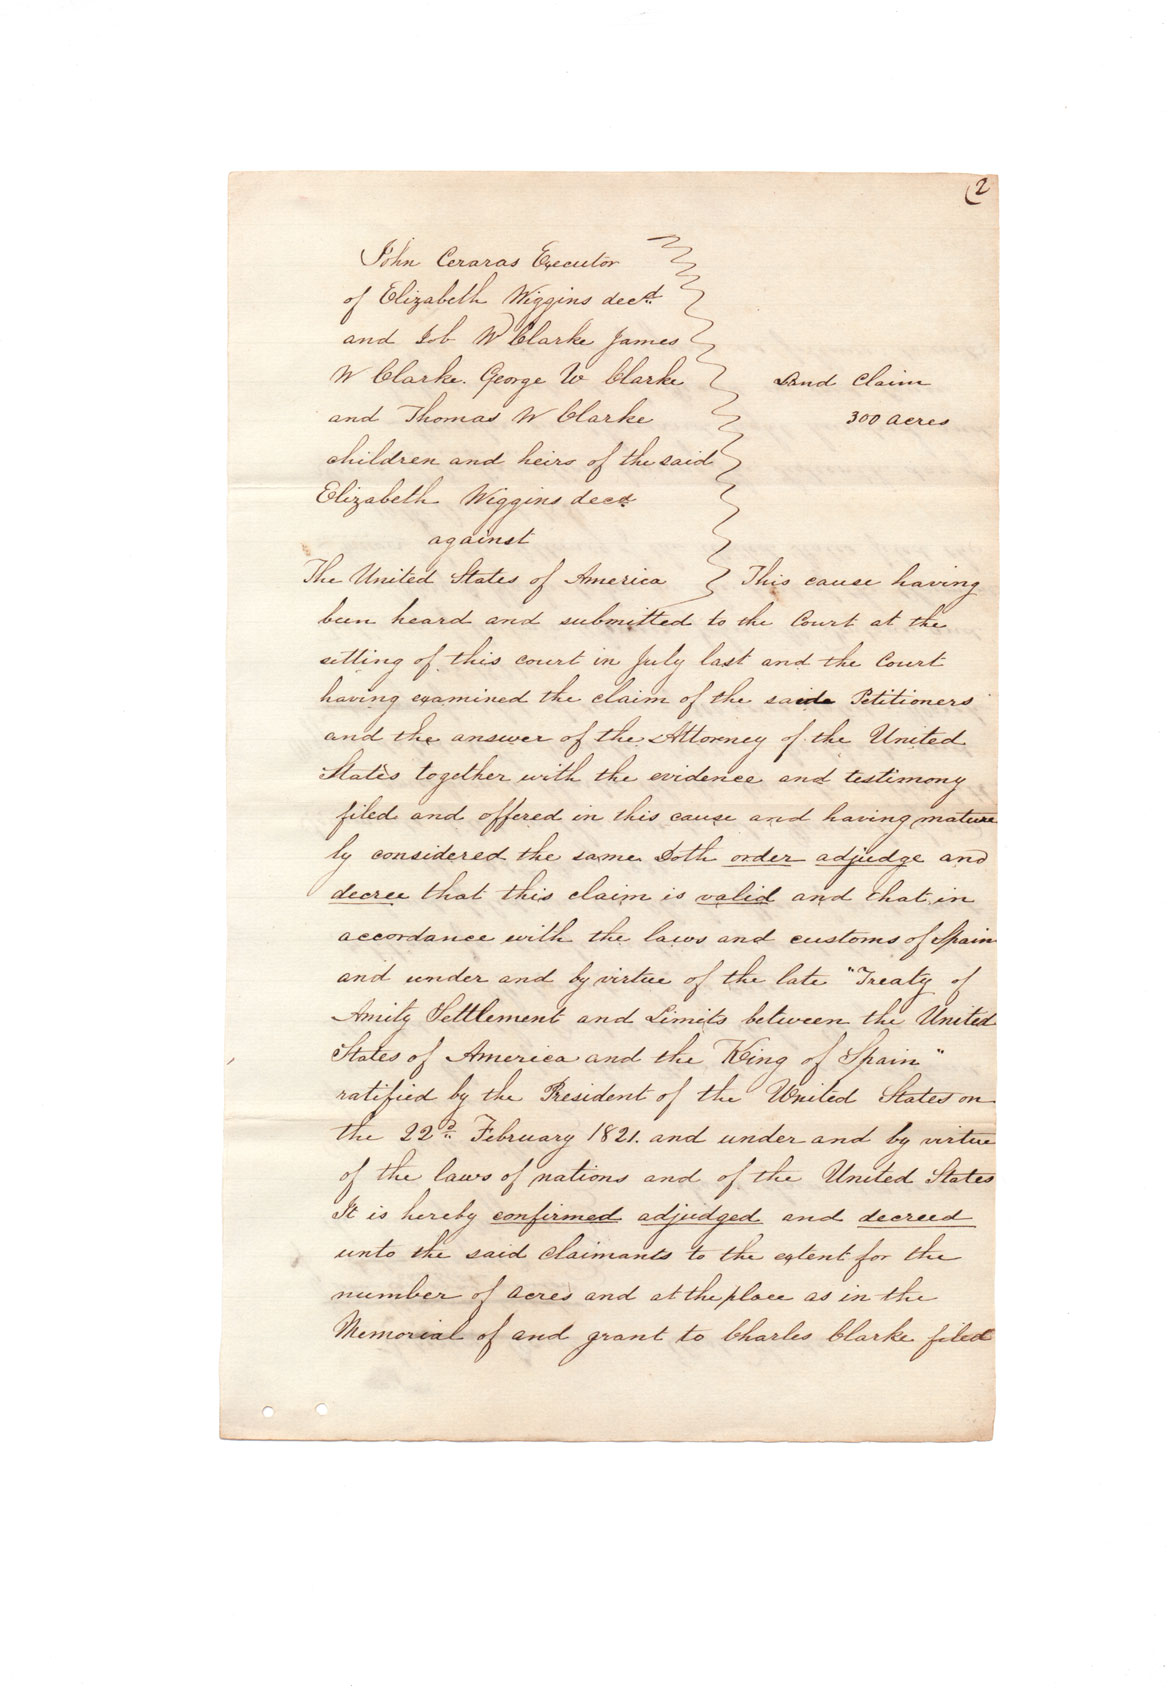 2
John Ceraras Executor
of Elizabeth Wiggins decd
and Job W Clarke James
W Clarke. George W Clarke
and Thomas W Clarke
children and heirs of the said
Elizabeth Wiggins decd
against
The United States of America
Land Claim
300 acres
This cause having
been heard and submitted to the Court at the
sitting of this court in July last and the Court
having examined the claim of the said Petitioners
and the answer of the Attorney of the United
States together with the evidence and testimony
filed and offered in this cause and having mature
ly considered the same Doth order adjudge and
decree that this claim is valid and that in
accordance with the laws and customs of Spain
and under and by virtue of the late "Treaty of
Amity Settlement and Limits between the United
States of America and the King of Spain"
ratified by the President of the United States on
the 22d February 1821. and under and by virtue
of the laws of nations and of the United States
It is hereby confirmed adjudged and decreed
unto the said claimants to the extent for the
number of acres and at the place as in the
Memorial of and grant to Charles Clarke filed